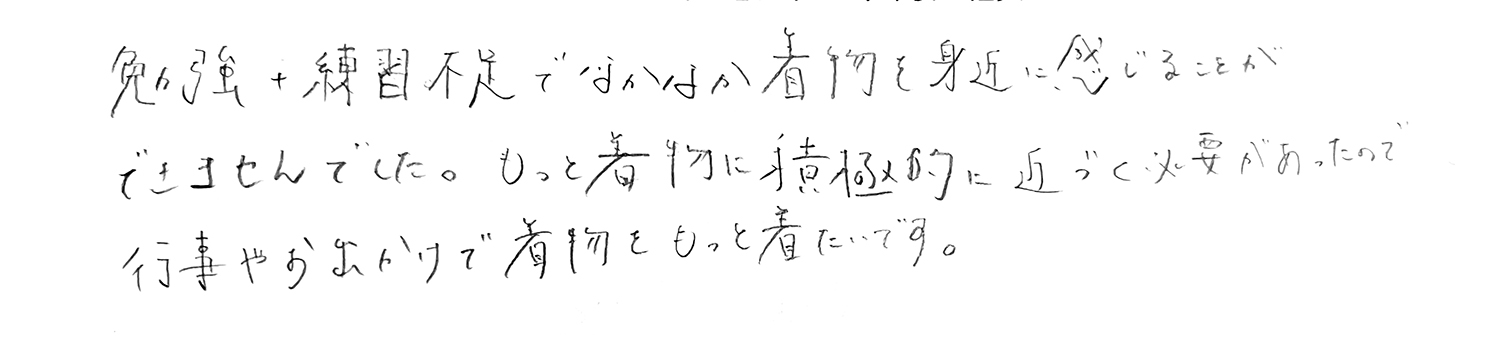 勉強+練習不足でなかなか着物を身近に感じることが
できませんでした。もっと着物に積極的に近づく必要があったので
行事やお出かけで着物をもっと着たいです。